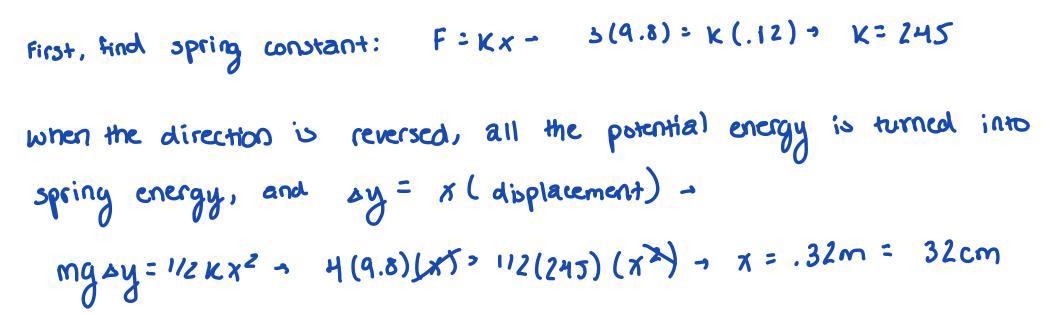 First, find spring constant: F = Kx - 3(9.8) = K(.12) → K = 245
when the direction is reversed, all the potential energy is turned into
spring energy, and Δy = x (displacement) →
mgΔy = 1/2 Kx² → 4(9.8)(x) = 1/2(245)(x²) → x = .32m = 32cm